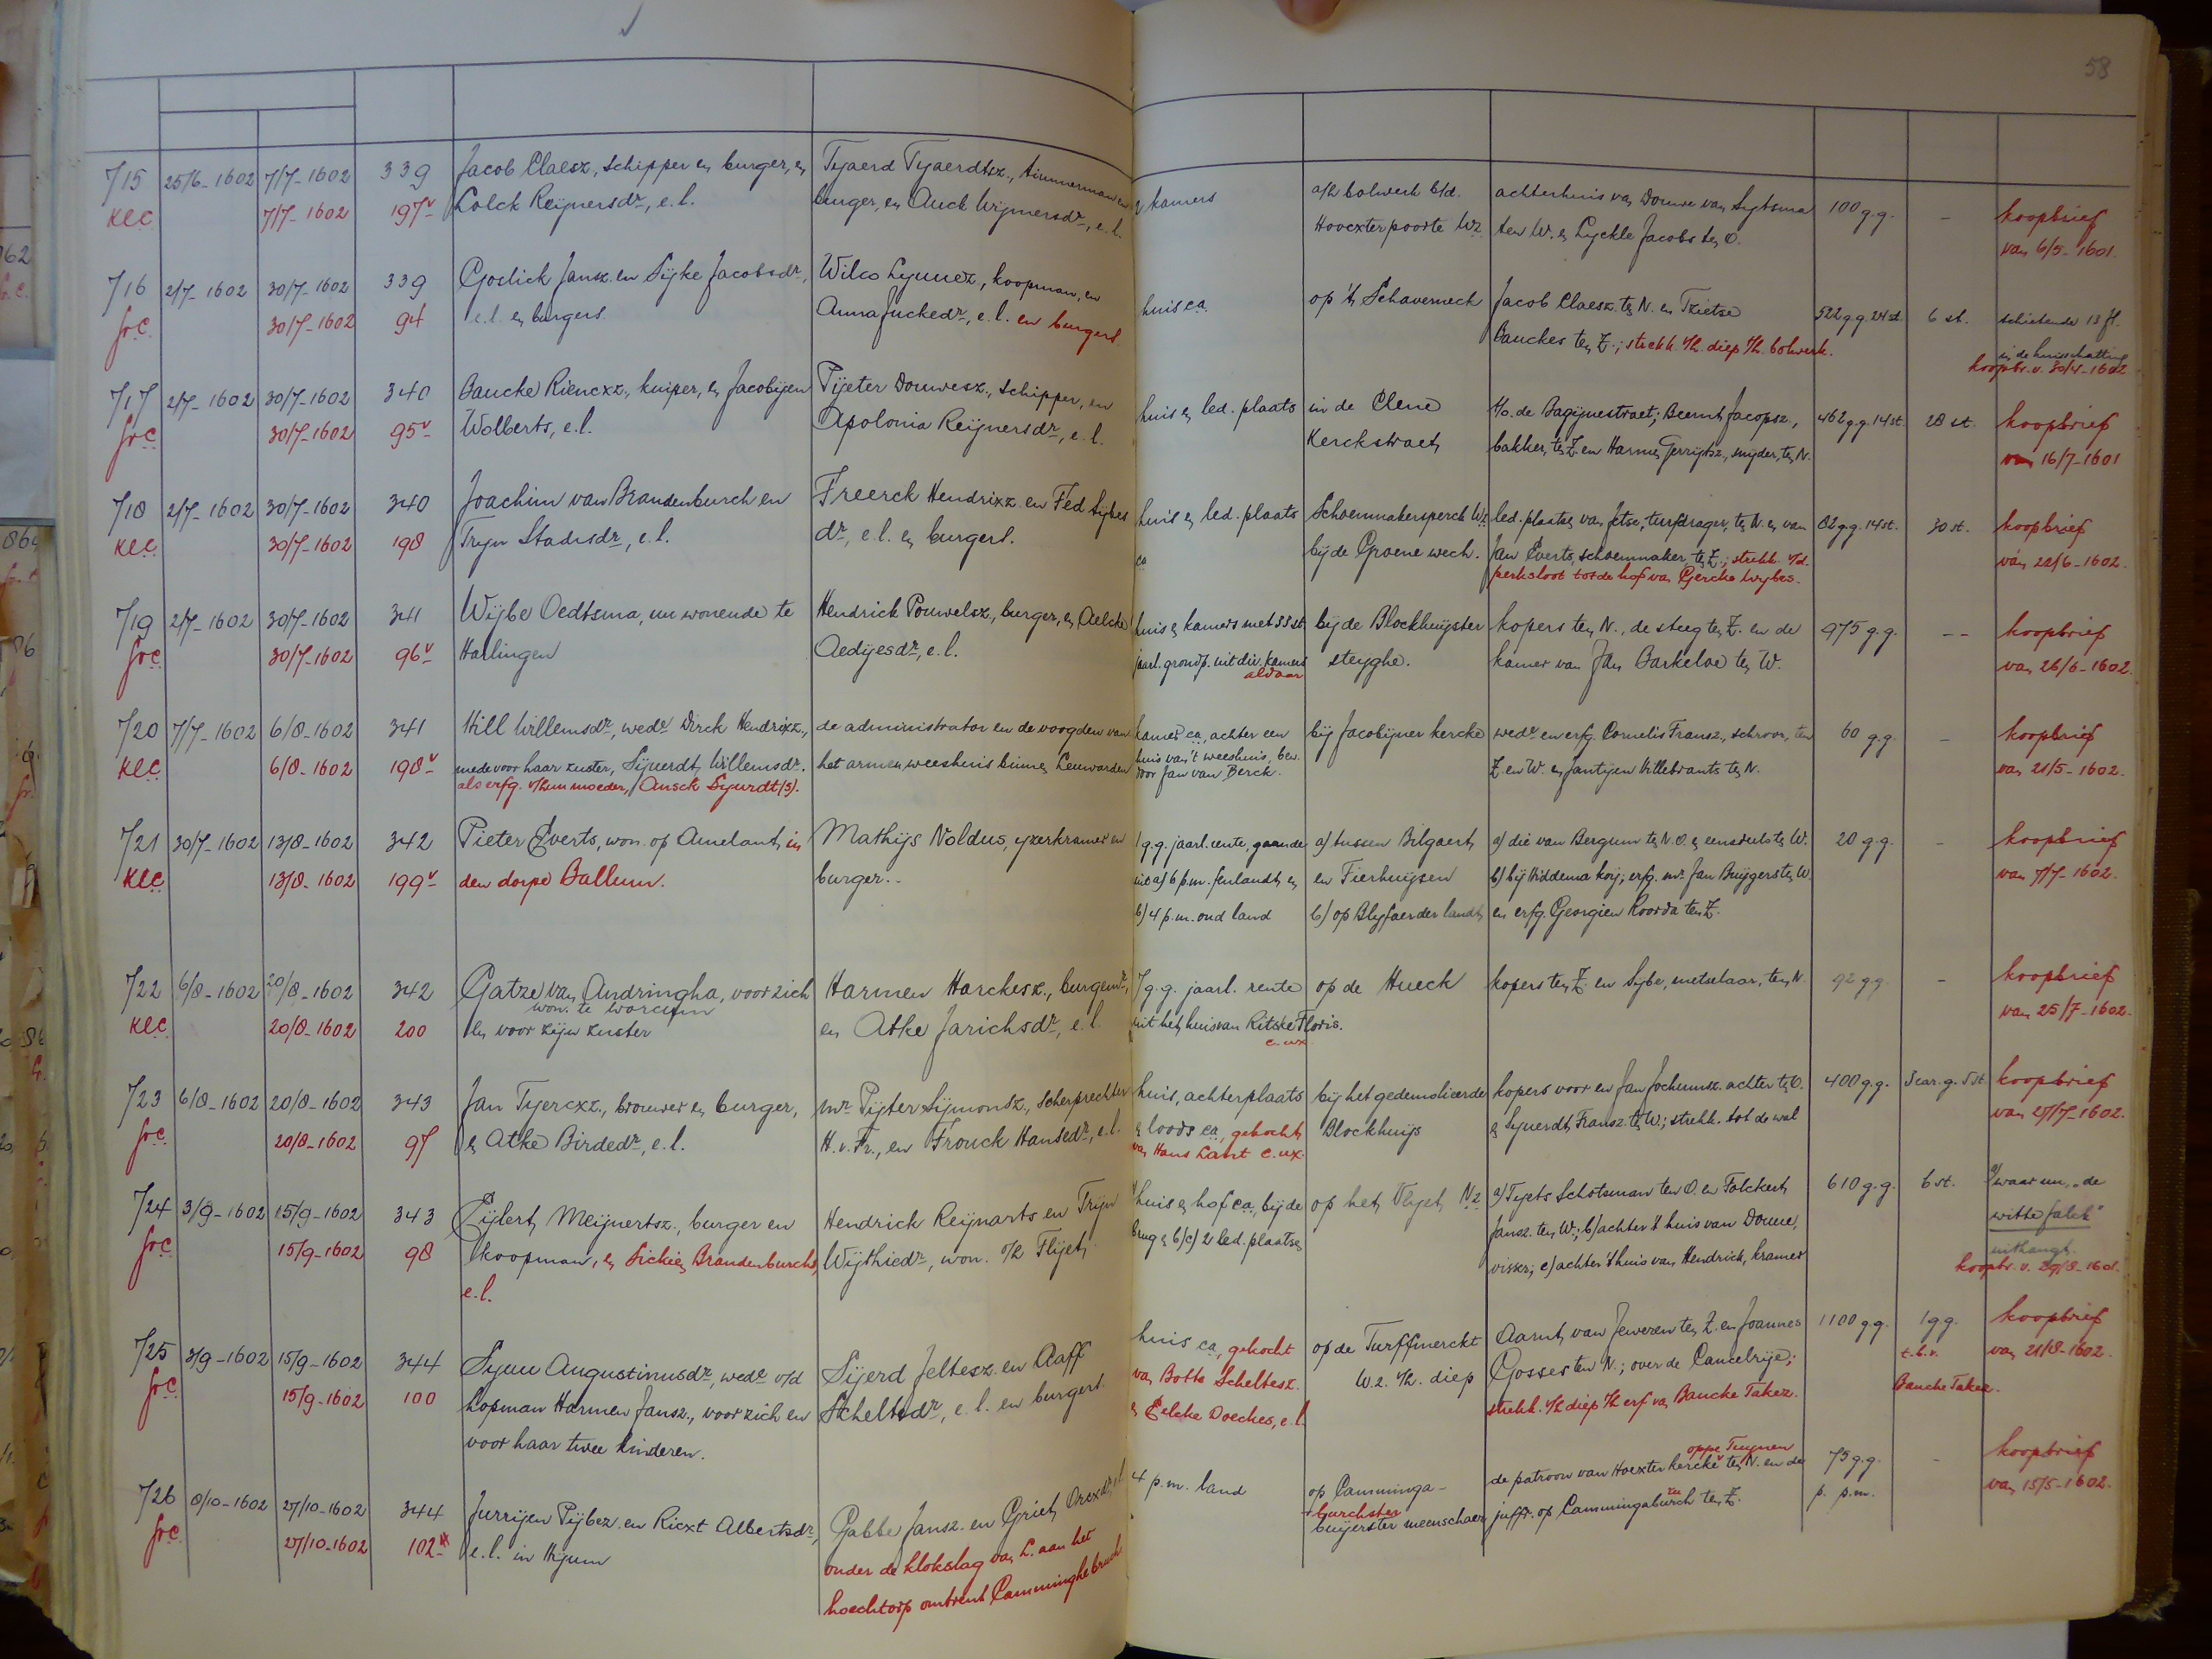 58
715 25/6-1602 7/7-1602 339 Jacob Claesz., schipper en burger, en Tyaerd Tyaerdtsz., timmerman en 2 kamers a/h bolwerk b/d. achterhuis van Douwe van Sytsma 100 g.g. - koopbrief
KLC. 7/7-1602 197v Lolck Reijnersdr, e.l. burger, en Auck Wijmersdr, e.l. Hoecxterpoorte Wz. ten W. en Lyckle Jacobs ten O. van 6/5-1601.
716 2/7-1602 30/7-1602 339 Goslick Jansz. en Sijke Jacobsdr, Wilco Lyuuez., koopman, en huis ca. op 't Schaverneck Jacob Claesz. ten N. en Tzietse 522 g.g. 24 st. 6 st. schietende 13 fl.
Gr.C. 30/7-1602 94 e.l. en burgers. Anna Juckedr, e.l. en burgers. Bauckes ten Z.; strekk. v/h. diep t/h. bolwerk. in de huisschatting
koopbr. v. 30/4-1602
717 2/7-1602 30/7-1602 340 Baucke Riencxz., kuiper, en Jacobijen Pijeter Douwesz., schipper, en huis en led. plaats in de Clene t/o. de Bagijnestraet; Beernt Jacopsz., 462 g.g. 14 st. 28 st. koopbrief
Gr.C. 30/7-1602 95v Wolberts, e.l. Apolonia Reijnersdr, e.l. Kerckstraet bakker, ten Z. en Harmen Gerrijtsz., snijder, ten N. van 16/7-1601
718 2/7-1602 30/7-1602 340 Joachim van Brandenburch en Freerck Hendrixz. en Fed Sijbes huis en led. plaats Schoenmakersperck Wz. led. plaatsen van Jetse, turfdrager, ten N. en van 82 g.g. 14 st. 30 st. koopbrief
KLC. 30/7-1602 198 Tryn Stadisdr, e.l. dr, e.l. en burgers. ca bij de Groene wech. Jan Everts, schoenmaker, ten Z.; strekk. v/d.
perksloot tot de hof van Gercke Wybes. van 22/6-1602.
719 2/7-1602 30/7-1602 341 Wijbe Oedtsma, nu wonende te Hendrick Pouwelsz., burger, en Aelcke huis en kamers met 33 st. bij de Blockhuijster kopers ten N., de steeg ten Z. en de 975 g.g. -- koopbrief
Gr.C. 30/7-1602 96v Harlingen Aedijesdr, e.l. jaarl. grondp. uit div. kamers aldaar steijghe. kamer van Jan Barkeloe ten W. van 26/6-1602.
720 7/7-1602 6/8-1602 341 Hill Willemsdr, wedr Dirck Hendrixz., de administrator en de voogden van kamer ca, achter een bij Jacobijner kercke wedr en erfg. Cornelis Fransz., schroor, ten 60 g.g. - koopbrief
KLC. 6/8-1602 198v mede voor haar zuster, Sijuerdt Willemsdr. het armen weeshuis binnen Leeuwarden huis van 't weeshuis, bew. Z. en W. en Jantijen Hillebrants ten N. van 21/5-1602.
als erfg. v/hun moeder, Ansck Syurdt(s). door Jan van Berck.
721 30/7-1602 13/8-1602 342 Pieter Everts, won. op Amelant, in Mathijs Noldus, yzerkramer en 1 g.g. jaarl. rente, gaande a) tussen Bilgaert a) die van Bergum ten N.O. en eensdeels ten W. 20 g.g. - koopbrief
KLC. 13/8-1602 199v den dorpe Ballum. burger. uit a) 6 p.m. fenlandt en en Fierhuijsen b) bij Hiddema hoij; erfg. mr. Jan Buijgers ten W. van 7/7-1602.
b) 4 p.m. oud land b) op Blyfaerder landt en erfg. Georgien Roorda ten Z.
722 6/8-1602 20/8-1602 342 Gatze van Andringha, voor zich Harmen Harckesz., burgemr, 7 g.g. jaarl. rente op de Hueck kopers ten Z. en Sybe, metselaar, ten N. 92 g.g. - koopbrief
won. te Worcum
KLC. 20/8-1602 200 en voor zijn zuster en Atke Jarichsdr, e.l. uit het huis van Ritske Floris. van 25/7-1602.
c. ux.
723 6/8-1602 20/8-1602 343 Jan Tyercxz., brouwer en burger, mr Pijter Sijmonsz., scherprechter huis, achterplaats bij het gedemolieerde kopers voor en Jan Jochumsz. achter ten O. 400 g.g. 5 car. g. 5 st. koopbrief
Gr.C. 20/8-1602 97 en Atke Birdedr, e.l. H.v.Fr., en Frouck Hansedr, e.l. en loods ca, gekocht Blockhuijs en Syuerdt Fransz. ten W.; strekk. tot de wal van 27/7-1602.
van Hans Lant c. ux.
724 3/9-1602 15/9-1602 343 Eijlert Meijnertsz., burger en Hendrick Reijnarts en Trijn a) huis en hof ca, bij de op het Vlyet Nz. a) Tyets Schotsman ten O. en Folckert 610 g.g. 6 st. a) waar nu, "de
Gr.C. 15/9-1602 98 koopman, en Sickien Brandenburchs, Wijthiedr, won. o/h Flijet brug en b/c) 2 led. plaatsen Jansz. ten W.; b) achter 't huis van Douue, witte falck"
e.l. visser; c) achter 't huis van Hendrick, kramer uithangt.
koopbr. v. 29/8-1601.
725 3/9-1602 15/9-1602 344 Syuu Augustinusdr, wedr v/d Sijerd Jeltesz. en Aaff huis ca, gekocht op de Turffmerckt Aarnt van Jeweren ten Z. en Joannes 1100 g.g. 1 g.g. koopbrief
Gr.C. 15/9-1602 100 hopman Harmen Jansz., voor zich en Scheltedr, e.l. en burgers. van Botte Scheltesz. W.z. v/h. diep Gosses ten N.; over de Cancelrije; t.b.v. van 21/8-1602.
voor haar twee kinderen. en Eelcke Doeckes, e.l. strekk. v/h diep t/h erf van Baucke Takez. Baucke Takez.
726 8/10-1602 27/10-1602 344 Jurrijen Pijbez. en Ricxt Albertsdr, Gabbe Jansz. en Griet e.l. 4 p.m. land op Camminga- de patroon van Hoexter kercke oppe Tuynen ten N. en de 75 g.g. - koopbrief
Gr.C. 27/10-1602 102 e.l. in Hijum onder de klokslag van L. aan het burchster juffr. op Cammingaburch ten Z. p. p.m. van 15/5-1602.
buijerster meenschaer
hoechtorp omtrent Camminghebruch